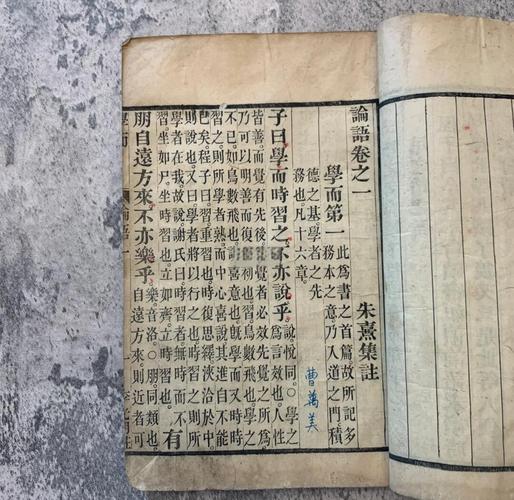 論語卷之一
朱熹集註
學而第一 此為書之首篇故所記多
務本之意乃入道之門積
德之基學者之先
務也凡十六章
曹萬美
子曰學而時習之不亦說乎 說悅同○學之
為言效也人性
皆善而覺有先後後覺者必效先覺之所為
乃可以明善而復其初也習鳥數飛也學之
不已如鳥數飛也說喜意也既學而又時時
習之則所學者熟而中心喜說其進自不能
已矣程子曰習重習也時復思繹浹洽於中
則說也又曰學者將以行之也時習之則所
學者在我故說謝氏曰時習者無時而不
習坐如尸坐時習也立如齊立時習也
有
朋自遠方來不亦樂乎 樂音洛○朋同類也
自遠方來則近者可